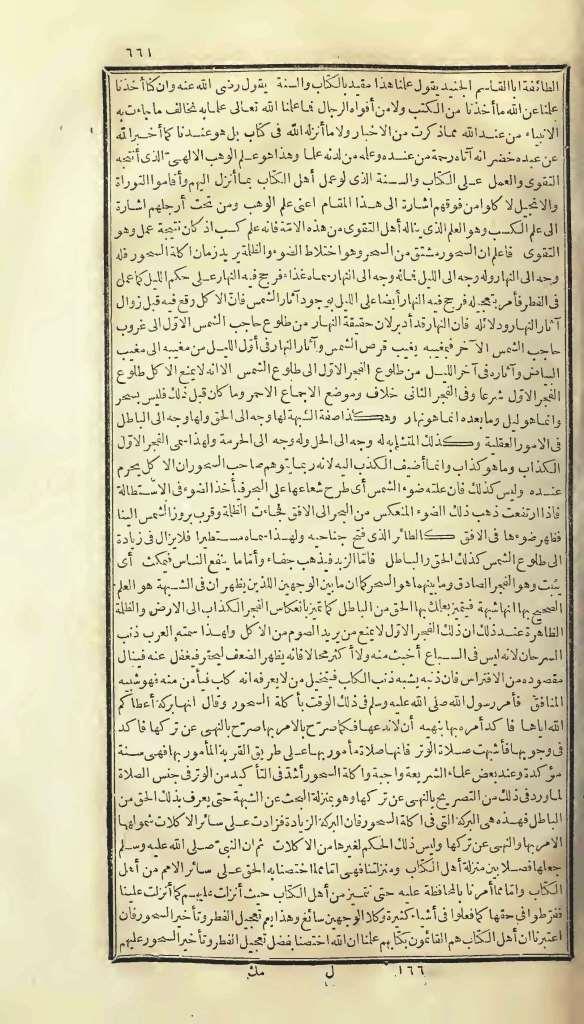 ٦٦١
الطائفة ابا القاسم الجنيد يقول علمنا هذا مقيد بالكتاب والسنة يقول رضى الله عنه وان كنا أخذنا
علمنا عن الله ما أخذنا من الكتب ولا من أفواه الرجال فما علمنا الله تعالى علما به نخالف ما جاءت به
الانبياء من عند الله مما ذكرت من الاخبار ولا ما أنزله الله فى كتاب بل هو عندنا كما أخبر الله
عن عبده خضر انه آتاه رحمة من عنده وعلمه من لدنه علما وهذا هو علم الوهب الالهى الذى أنتجه
التقوى والعمل على الكتاب والسنة الذى لو عمل أهل الكتاب بما أنزل اليهم وأقاموا التوراة
والانجيل لا كلوا من فوقهم اشارة الى هذا المقام اعنى علم الوهب ومن تحت أرجلهم اشارة
الى علم الكسب وهو العلم الذى يناله أهل التقوى من هذه الامة فانه علم كسب اذ كان نتيجة عمل وهو
التقوى فاعلم ان السحور مشتق من السحر وهو اختلاط الضوء والظلمة يريد زمان اكلة السحور فله
وجه الى النهار وله وجه الى الليل فبماله وجه الى النهار سماه غذاء فرجح فيه النهار على حكم الليل كما عمل
فى الفطر فأمر بتعجيله فرجح فيه النهار أيضا على الليل بوجود آثار الشمس فان الاكل وقع فيه قبل زوال
آثار النهار ودلائله فان النهار قد أدبر لان حقيقة النهار من طلوع حاجب الشمس الاول الى غروب
حاجب الشمس الآخر فبمغيبه يغيب قرص الشمس وآثار النهار فى أول الليل من مغيبه الى مغيب
البياض وآثاره فى آخر الليل من طلوع الفجر الاول الى طلوع الشمس الا انه لا يمنع الاكل طلوع
الفجر الاول شرعا وفى الفجر الثانى خلاف وموضع الاجماع الاحمر وما كان قبل ذلك فليس بسحر
وانما هو ليل وما بعده انما هو نهار وهكذا صفة الشبهة لها وجه الى الحق ولها وجه الى الباطل
فى الامور العقلية وكذلك المتشابه له وجه الى الحل وله وجه الى الحرمة ولهذا سمى الفجر الاول
الكذاب وما هو كذاب وانما أضيف الكذب اليه لانه ربما يتوهم صاحب السحور ان الاكل يحرم
عنده وليس كذلك فان علته ضوء الشمس أى طرح شعاعها على البحر فيأخذ الضوء فى الاستطالة
فاذا ارتفعت ذهب ذلك الضوء المنعكس من البحر الى الافق فجاءت الظلمة وقرب بروز الشمس الينا
فظهر ضوءها فى الافق كالطائر الذى فتح جناحيه ولهذا سماه مستطيرا فلا يزال فى زيادة
الى طلوع الشمس كذلك الحق والباطل فاما الزبد فيذهب جفاء وأما ما ينفع الناس فيمكث أى
يثبت وهو الفجر الصادق وما بينهما هو السحر كما ان ما بين الوجهين اللذين يظهران فى الشبهة هو العلم
الصحيح بها انها شبهة فيتميز بعلمك بها الحق من الباطل كما تميز بانعكاس الفجر الكذاب الى الارض والظلمة
الظاهرة عند ذلك ان ذلك الفجر الاول لا يمنع من يريد الصوم من الاكل ولهذا سمته العرب ذنب
السرحان لانه ليس فى السباع أخبث منه ولا أكثر محالا فانه يظهر الضعف ليحقر فيغفل عنه فينال
مقصوده من الافتراس فان ذنبه يشبه ذنب الكلب فيتخيل من لا يعرفه انه كلب فيأمن منه فهو شبيه
المنافق فأمر رسول الله صلى الله عليه وسلم فى ذلك الوقت بأكلة السحور وقال انها بركة أعطاكم
الله اياها فأكد أمره بها بنهيه أن لا ندعها فكما صرح بالامر بها صرح بالنهى عن تركها فأكد
فى وجوبها فأشبهت صلاة الوتر فانها صلاة مأمور بها على طريق القربة المأمور بها فهى سنة
مؤكدة وعند بعض علماء الشريعة واجبة واكلة السحور أشد فى التأكيد من الوتر فى جنس الصلاة
لما ورد فى ذلك من التصريح بالنهى عن تركها وهو بمنزلة البحث عن الشبهة حتى يعرف بذلك الحق من
الباطل فهذه هى البركة التى فى اكلة السحور فان البركة الزيادة فزادت على سائر الاكلات شمولها
الامر بها والنهى عن تركها وليس ذلك الحكم لغيرها من الاكلات ثم ان النبى صلى الله عليه وسلم
جعلها فصلا بين منزلة أهل الكتاب ومنزلتنا فهى امّا مما اختصنا به الحق على سائر الامم من أهل
الكتاب وامّا مما أمرنا بالمحافظة عليه حتى نتميز من أهل الكتاب حيث أنزلت عليهم كما أنزلت علينا
ففرطوا فى حقها كما فعلوا فى أشياء كثيرة وكلا الوجهين سائغ وهذا يعم تعجيل الفطر وتأخير السحور فان
اعتبرنا ان أهل الكتاب هم القائمون بكتابهم علمنا ان الله اختصنا بفضل تعجيل الفطر وتأخير السحور عليهم
١٦٦ ل مك